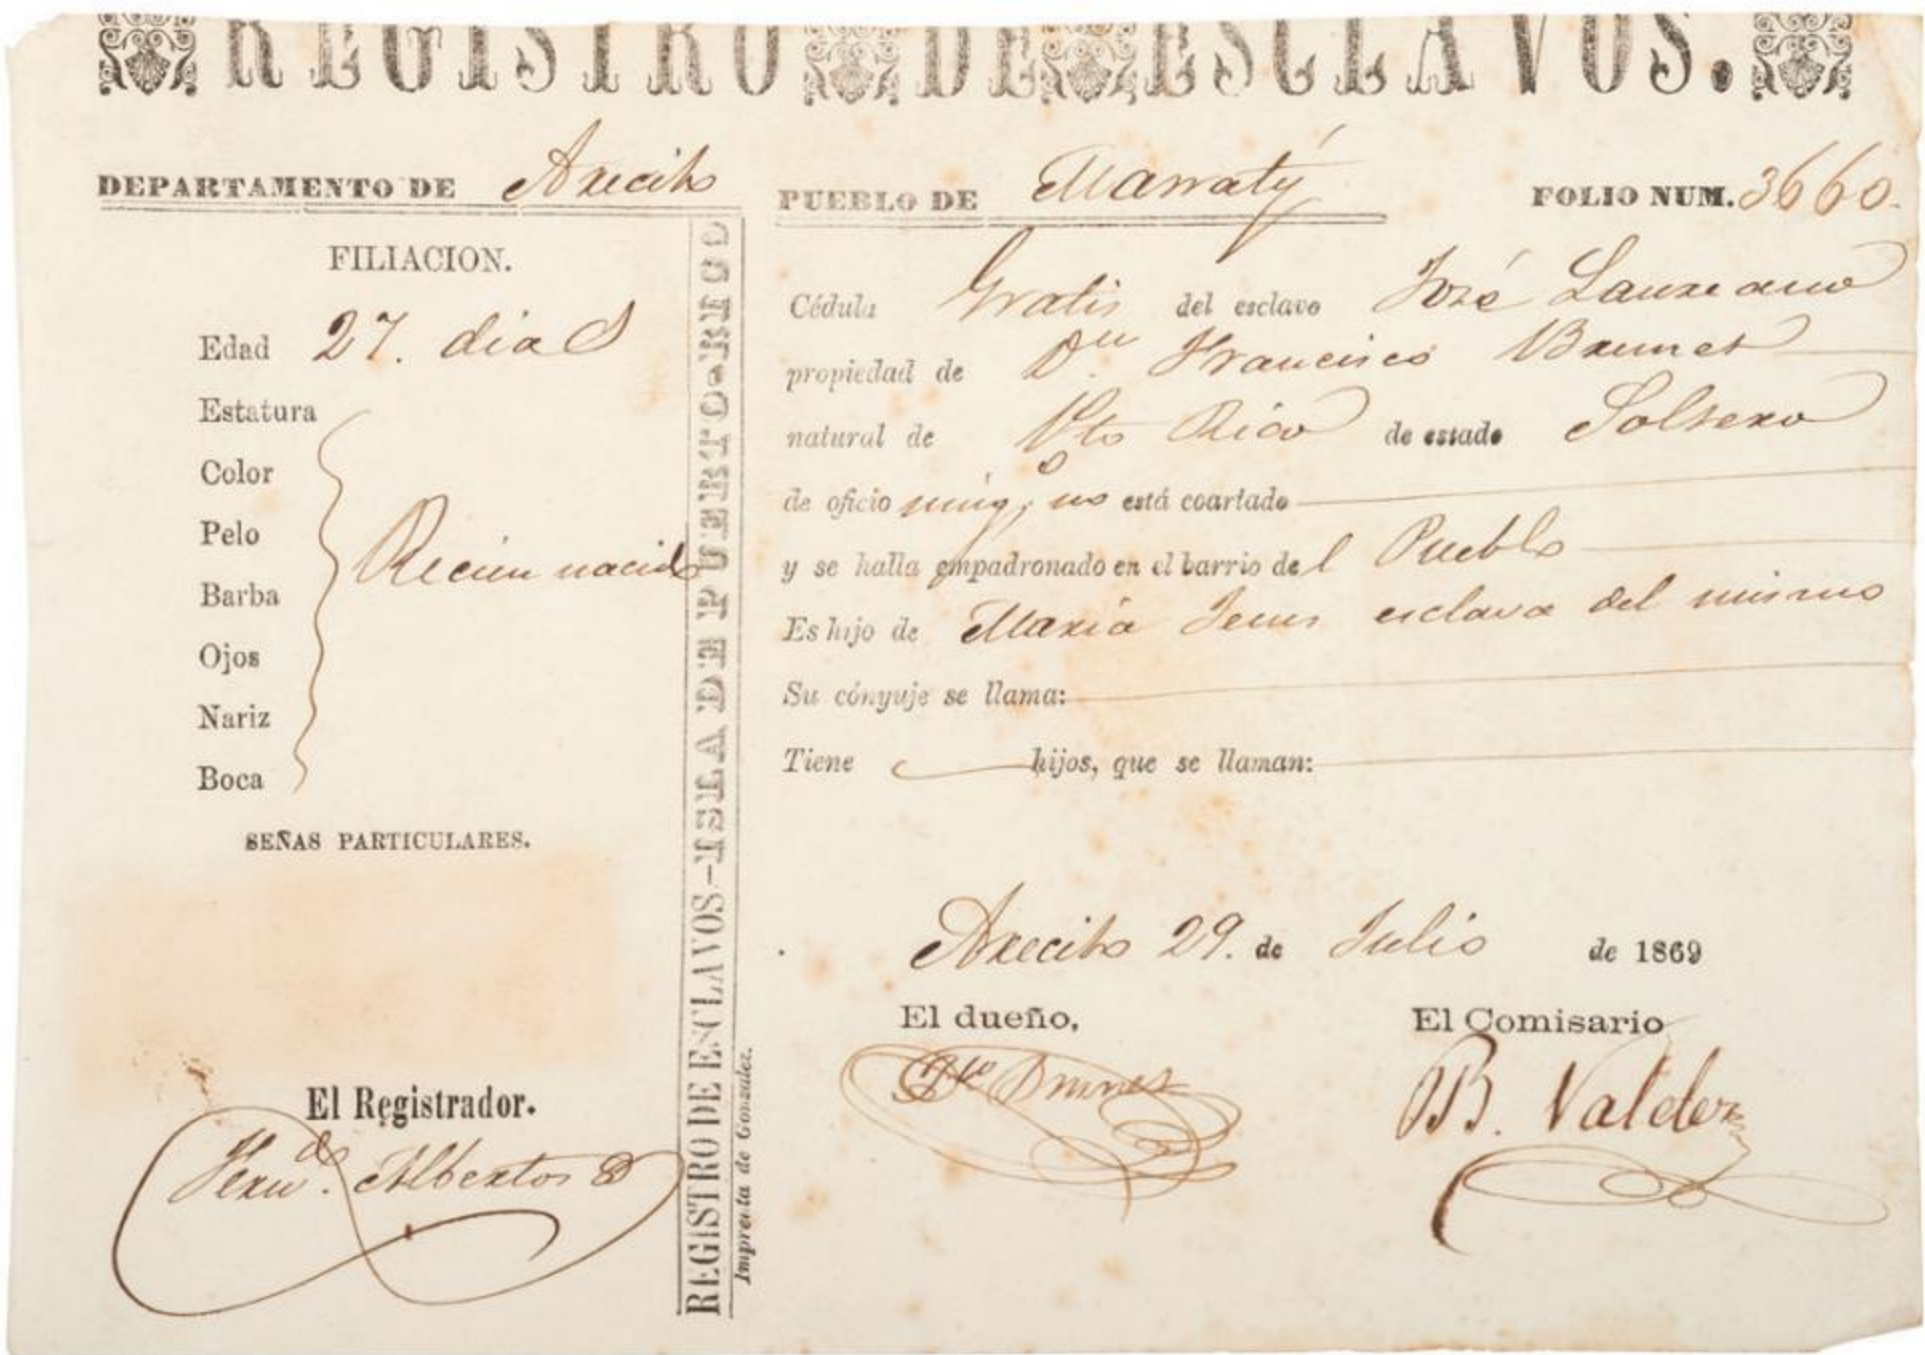 REGISTRO DE ESCLAVOS.
DEPARTAMENTO DE Arecibo
PUEBLO DE Manatý
FOLIO NUM. 3660.
FILIACION.
Edad 27. dias
Estatura
Color
Pelo
Barba
Ojos
Nariz
Boca
Recien nacido
SEÑAS PARTICULARES.
El Registrador.
Fern.do Albertos
REGISTRO DE ESCLAVOS—ISLA DE PUERTO-RICO
Imprenta de Gonzalez.
Cédula Gratis del esclavo José Laureano
propiedad de Dn. Francisco Brunet
natural de Pto Rico de estado Soltero
de oficio ningo; no está coartado
y se halla empadronado en el barrio del Pueblo
Es hijo de Maria Jesus esclava del mismo
Su cónyuje se llama:
Tiene hijos, que se llaman:
Arecibo 29. de Julio de 1869
El dueño,
Fco Brunet
El Comisario
B. Valdez